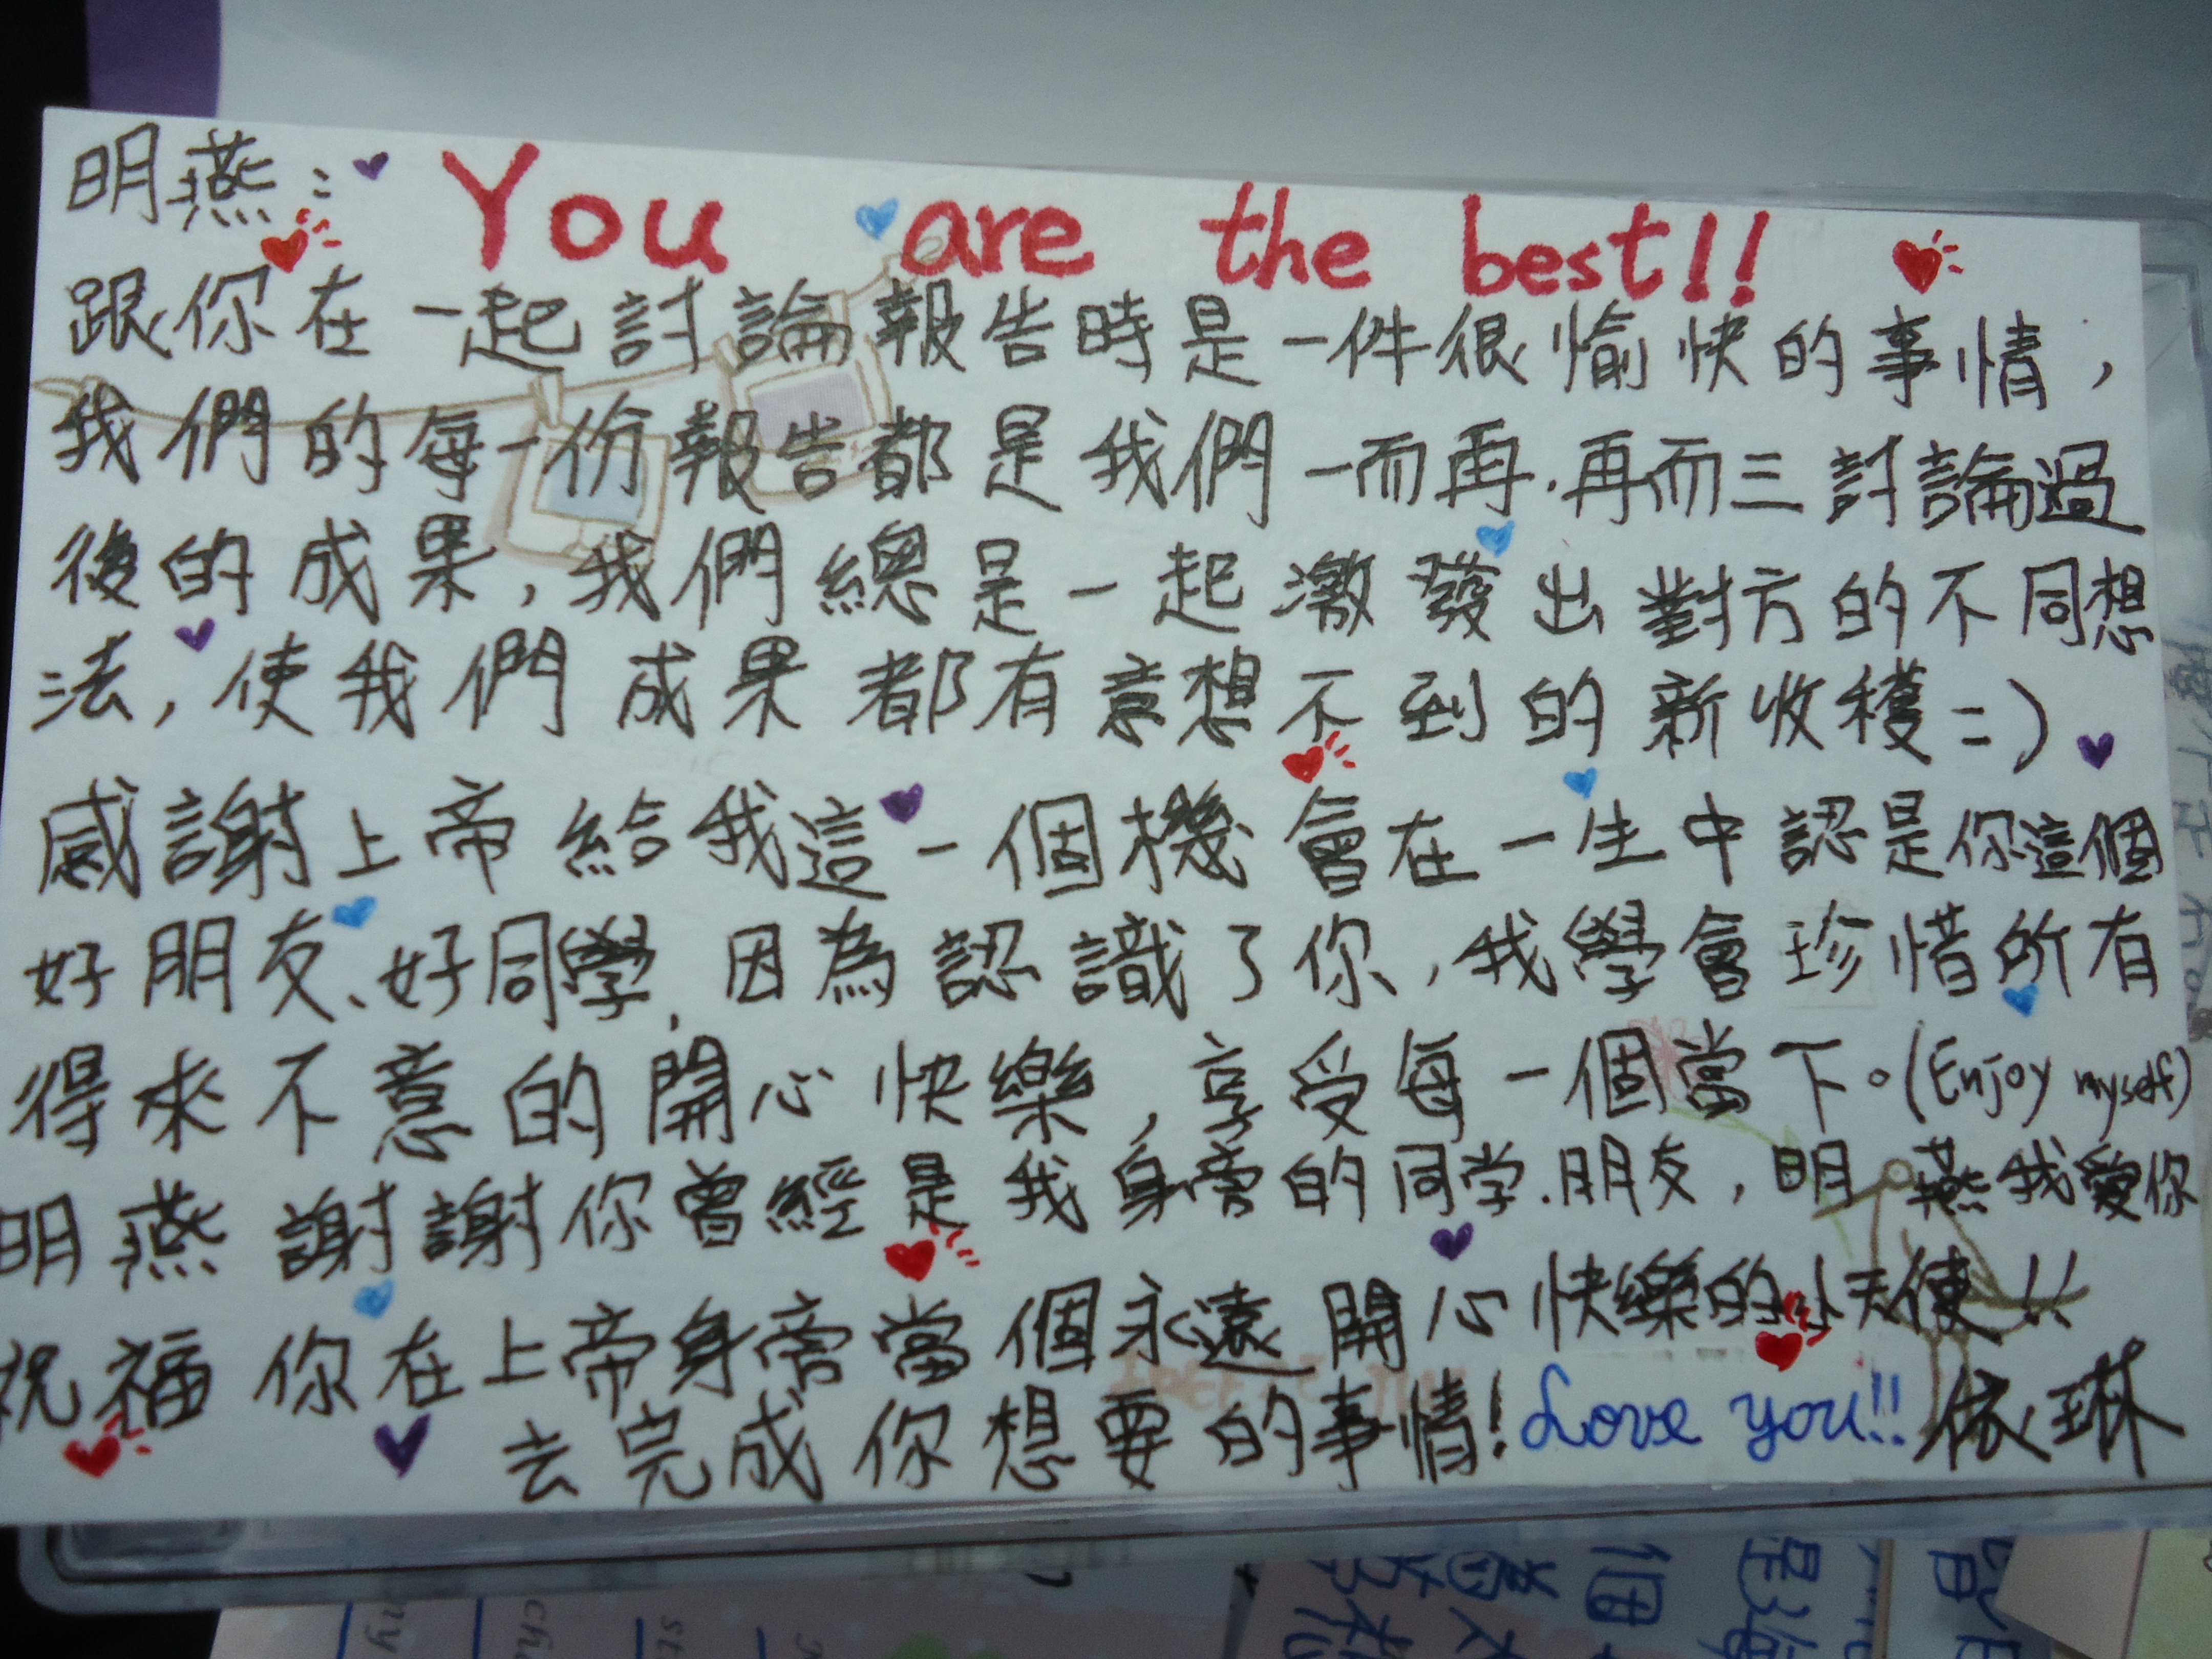 明燕: You are the best!!
跟你在一起討論報告時是一件很愉快的事情,
我們的每一份報告都是我們一而再.再而三討論過
後的成果,我們總是一起激發出對方的不同想
法,使我們成果都有意想不到的新收穫=)
感謝上帝給我這一個機會在一生中認是你這個
好朋友、好同學,因為認識了你,我學會珍惜所有
得來不意的開心快樂,享受每一個當下。(Enjoy myself)
明燕謝謝你曾經是我身旁的同学.朋友,明燕我愛你
祝福你在上帝身旁當個永遠開心快樂的小天使!!
去完成你想要的事情! Love you!! 依琳